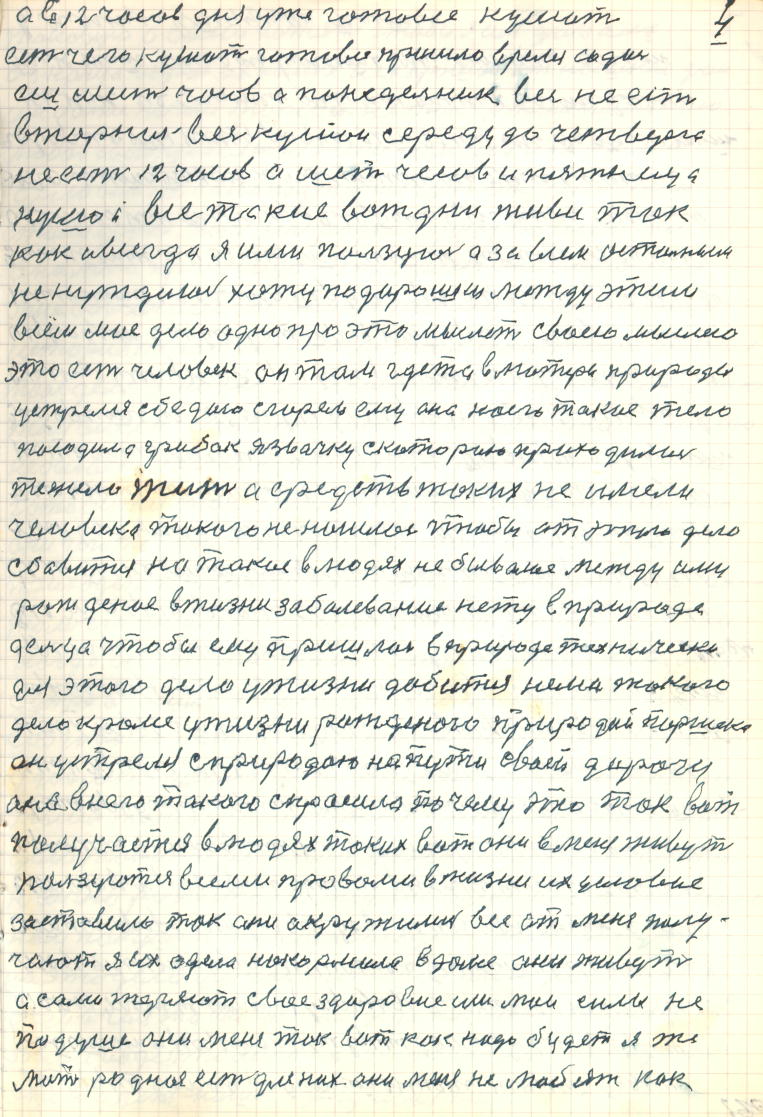 4
а в 12 часов дня уже готовое кушат
сет чего кушат готова пришло время садис
еш шит часов а понеделник вес не ест
вторник вес кушай середу до четверга
не сет 12 часов а шет часов и пятница
кушай все такие вот дни живи так
как и всегда я ими ползуюс а за всем осталным
не нуждаюс хожу по дарошки между этим
всем мое дело одно про это мыслет своею мыслею
это сет человек он там где та в матери природы
устрелся с бедою сгорем ему она на его такое тело
посодила грибок язвачку с каторою приходилос
тежело жит а средств таких не имели
человека такого не нашлос чтобы от этого дело
сбавится на такое в людях не бывалое между ими
рожденое в жизни заболевание нету в природе
делца чтобы ему пришлос в природе технически
для этого дело у жизни добится нема такого
дело кроме у жизни рожденого природай Паршека
он устрелся с природаю на пути своей дарогу
она в него такого спросила почему это так вот
получается в людях таких вот они в меня живут
ползуются всеми правами в жизни их условие
заставило так они окружилис все от меня полу-
чают я их одела накормила в доме они живут
а сами теряют свое здоровие им мои силы не
по душе они меня так вот как надо будет я же
мат родная ест для них они меня не любят как